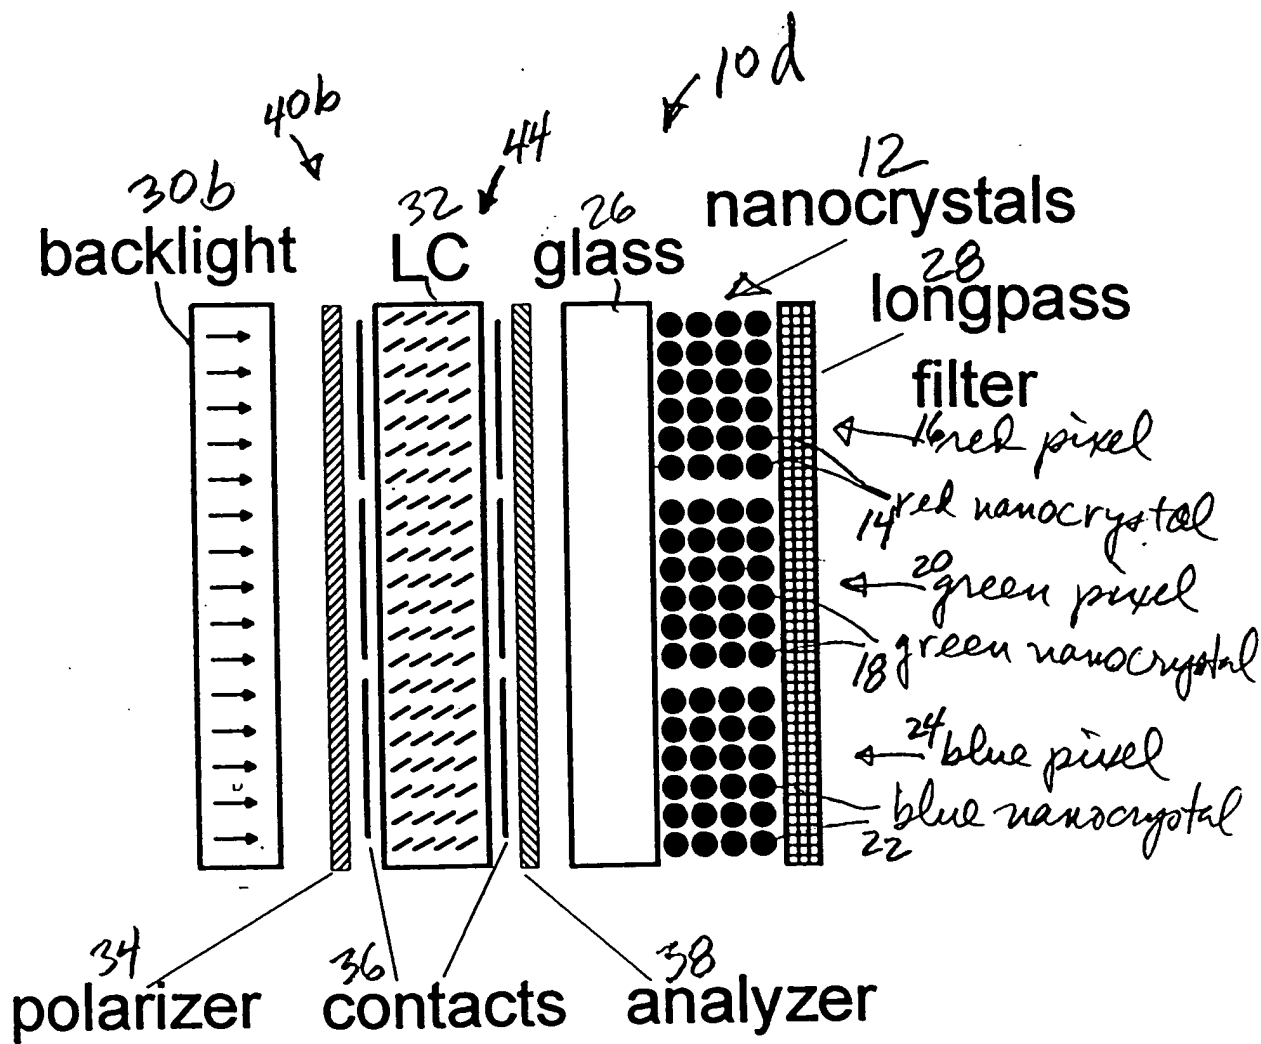 10d
40b
44
12
nanocrystals
30b
backlight
32
LC
26
glass
28
longpass
filter
16 red pixel
14 red nanocrystal
20 green pixel
18 green nanocrystal
24 blue pixel
blue nanocrystal
22
34
polarizer
36
contacts
38
analyzer